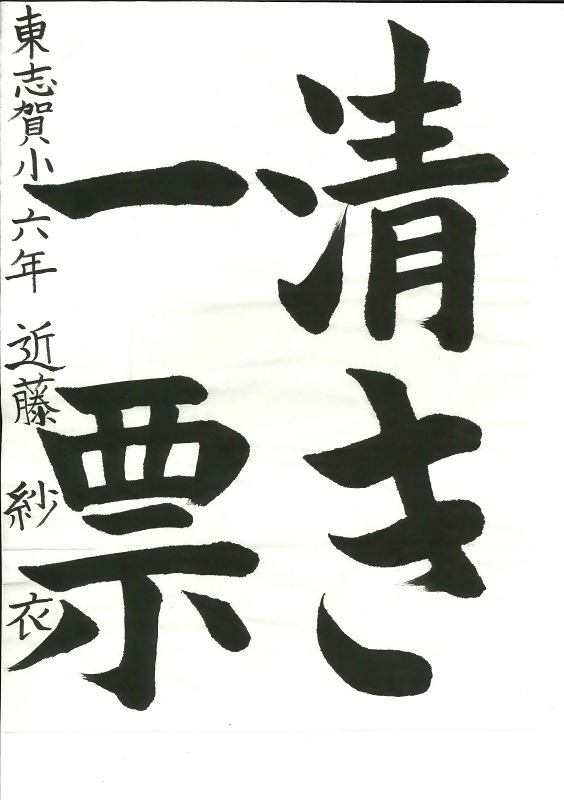 清き
一票
東志賀小 六年 近藤 紗衣